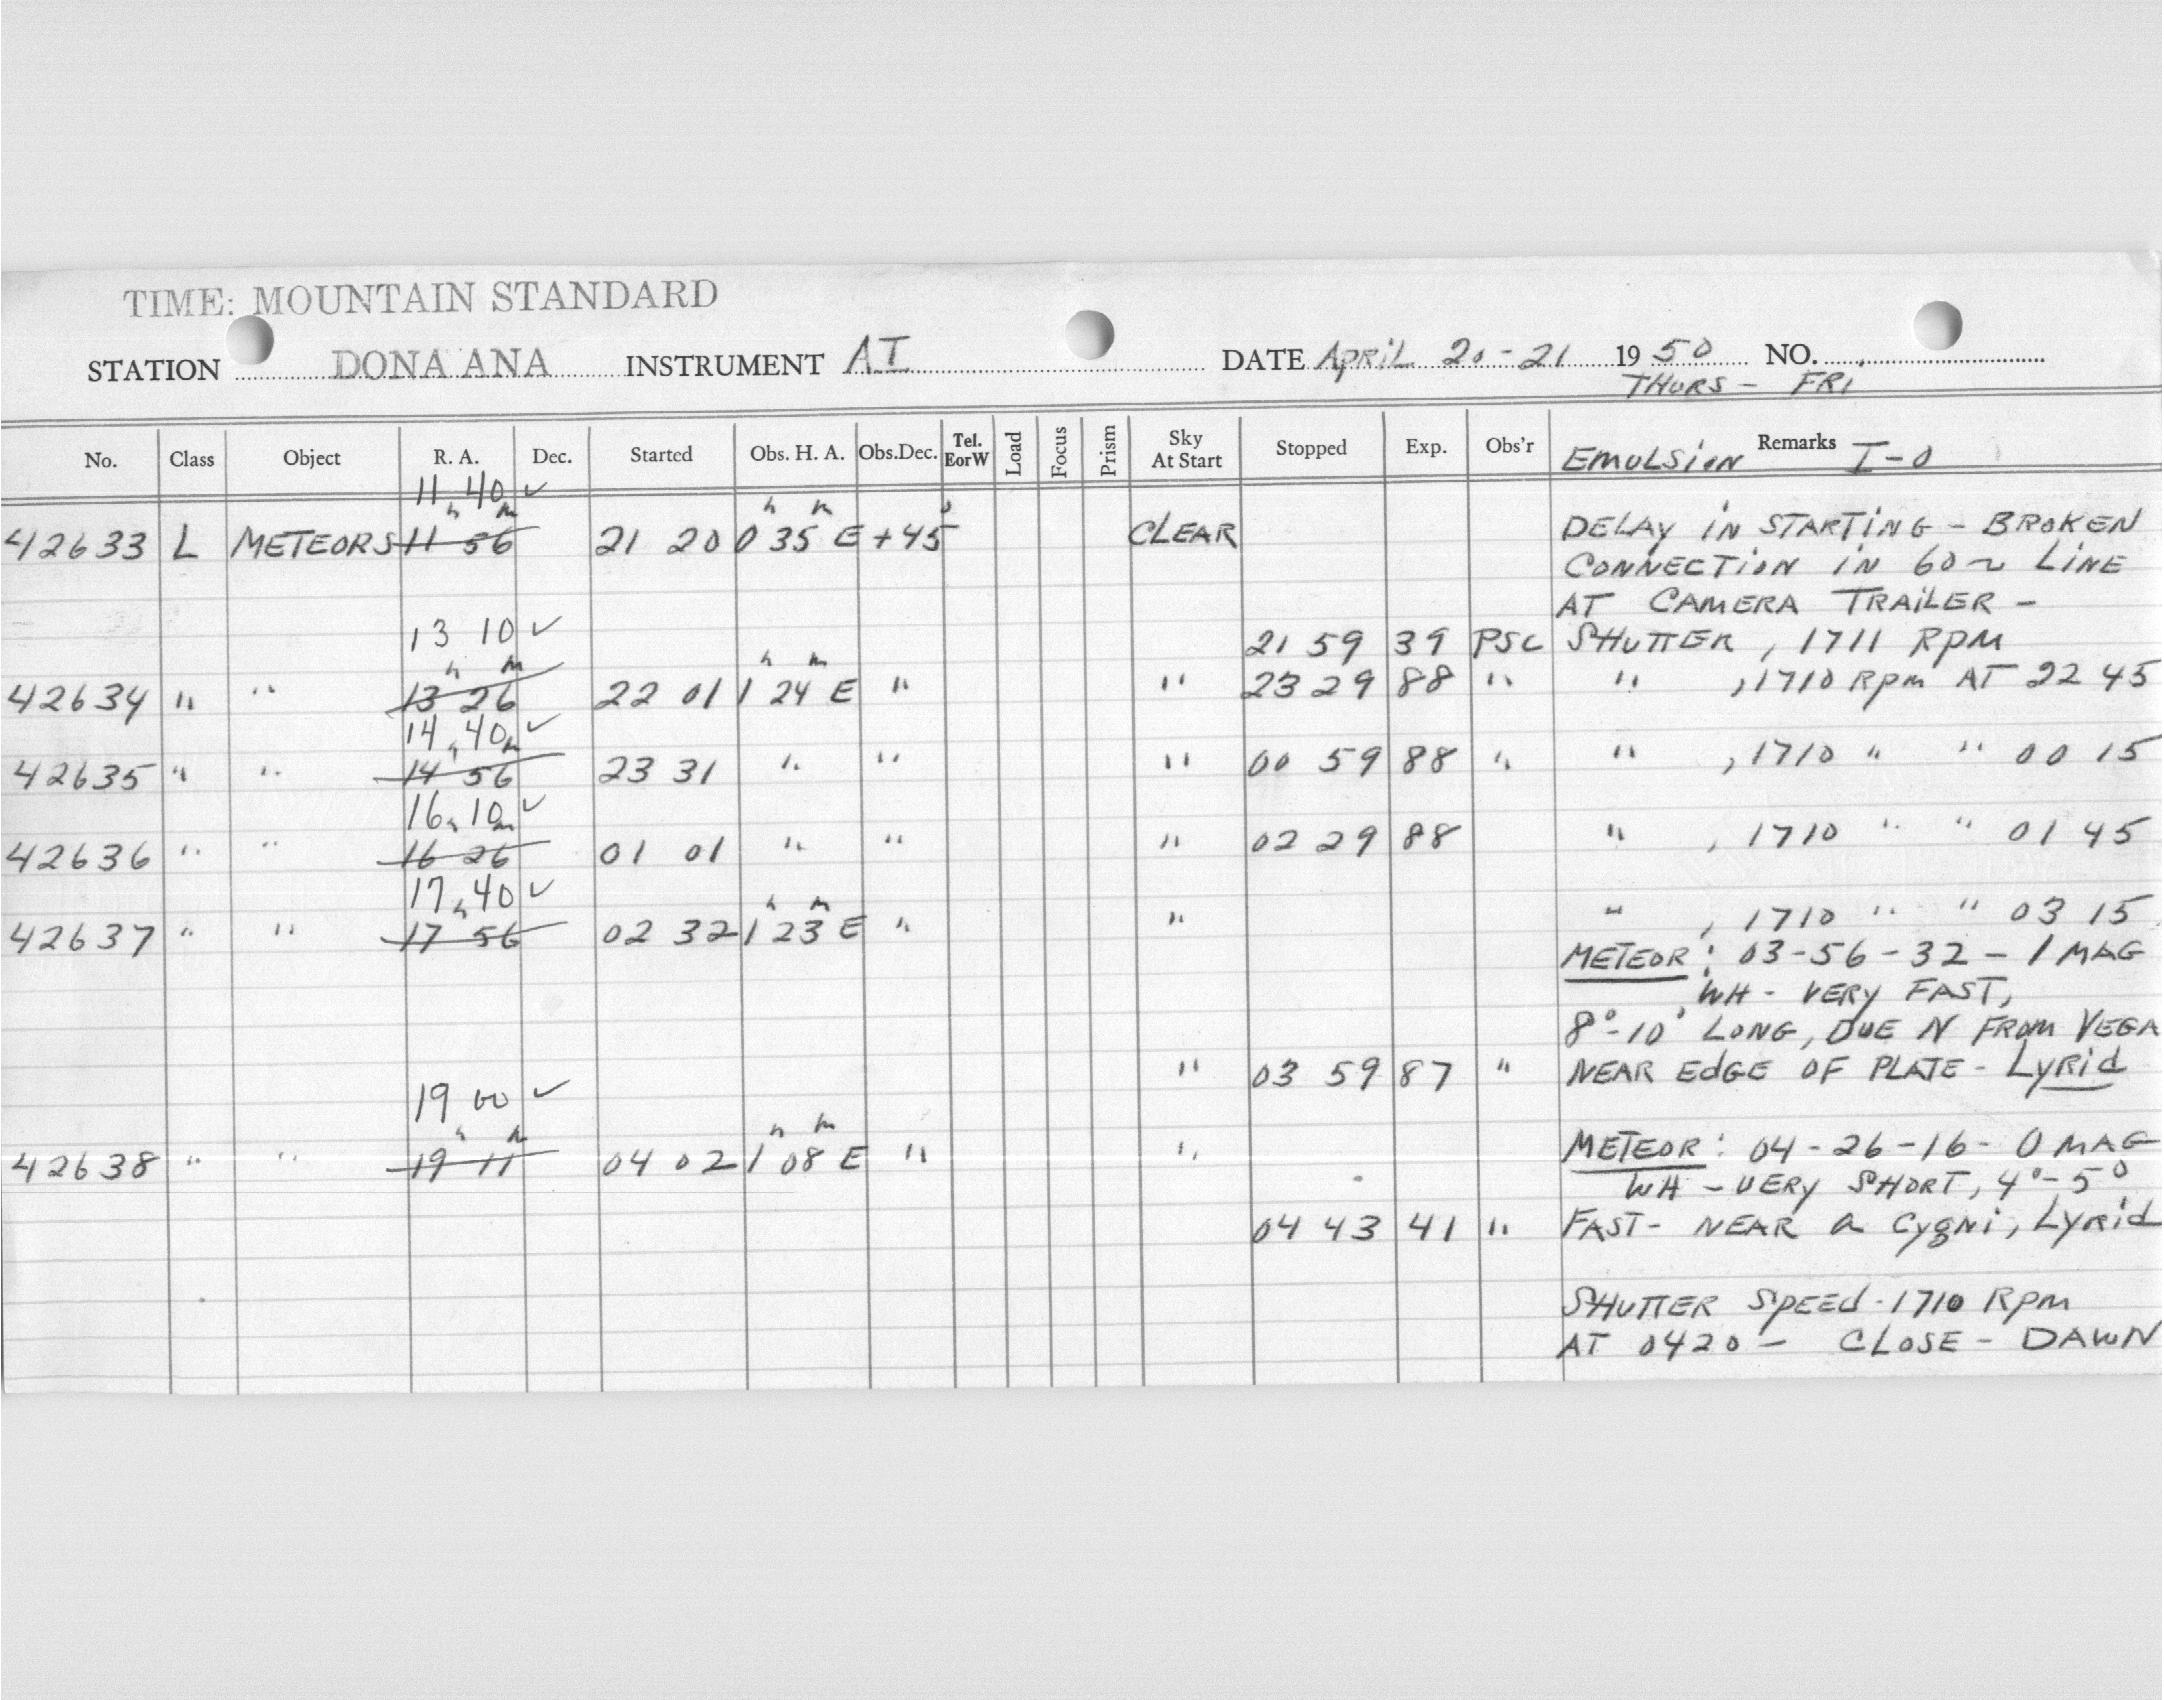 TIME: MOUNTAIN STANDARD
STATION DONA ANA INSTRUMENT AI DATE APRIL 20-21 1950 NO.
THURS - FRI
No. Class Object R. A. Dec. Started Obs. H. A. Obs.Dec. Tel. EorW Load Focus Prism Sky At Start Stopped Exp. Obs'r Remarks
EMULSION I-O
11 40 ✓
42633 L METEORS 11h 56m 21 20 0h 35m E +45° CLEAR DELAY IN STARTING - BROKEN
CONNECTION IN 60~ LINE
AT CAMERA TRAILER -
13 10 ✓ 21 59 39 PSC SHUTTER, 1711 RPM
42634 " " 13h 26m 22 01 1h 24m E " " 23 29 88 " " , 1710 RPM AT 22 45
14 40 ✓
42635 " " 14h 56m 23 31 " " " 00 59 88 " " , 1710 " " 00 15
16 10 ✓
42636 " " 16h 26m 01 01 " " " 02 29 88 " , 1710 " " 01 45
17 40 ✓
42637 " " 17h 56 02 32 1h 23m E " " " , 1710 " " 03 15
METEOR: 03-56-32 - 1 MAG
WH - VERY FAST,
8°-10° LONG, DUE N FROM VEGA
" 03 59 87 " NEAR EDGE OF PLATE - LYRID
19 00 ✓
42638 " " 19h 11m 04 02 1h 08m E " " METEOR: 04-26-16- 0 MAG
WH - VERY SHORT, 4°-5°
04 43 41 " FAST - NEAR α Cygni, LYRID
SHUTTER SPEED - 1710 RPM
AT 0420 - CLOSE - DAWN